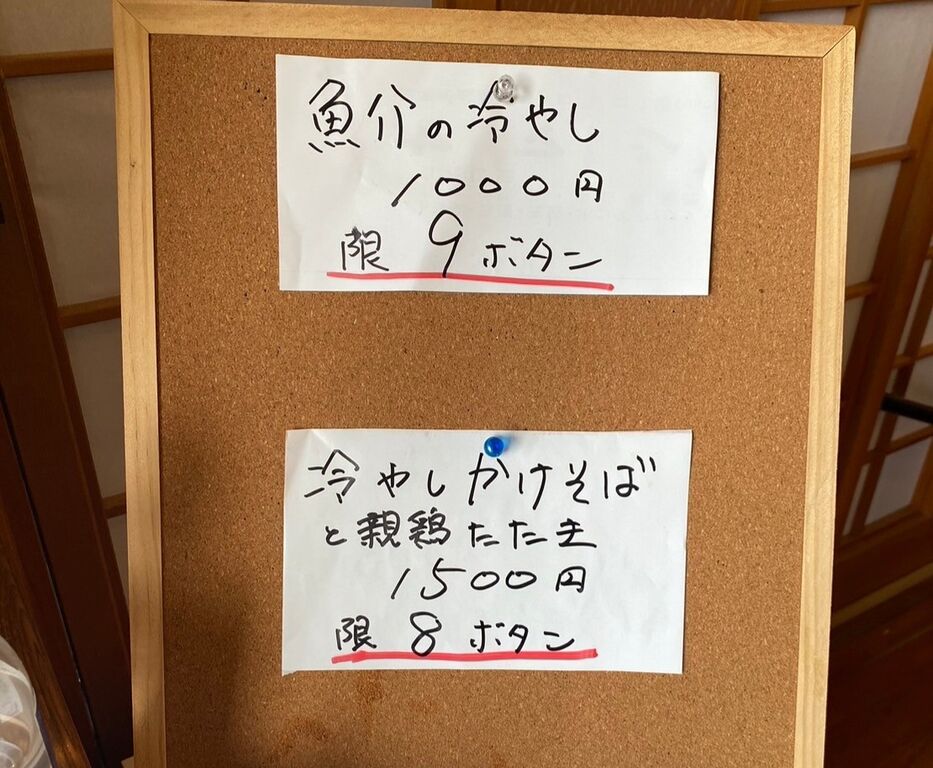 魚介の冷やし
1000円
限 9 ボタン
冷やしかけそば
と親鶏たた主
1500円
限 8 ボタン